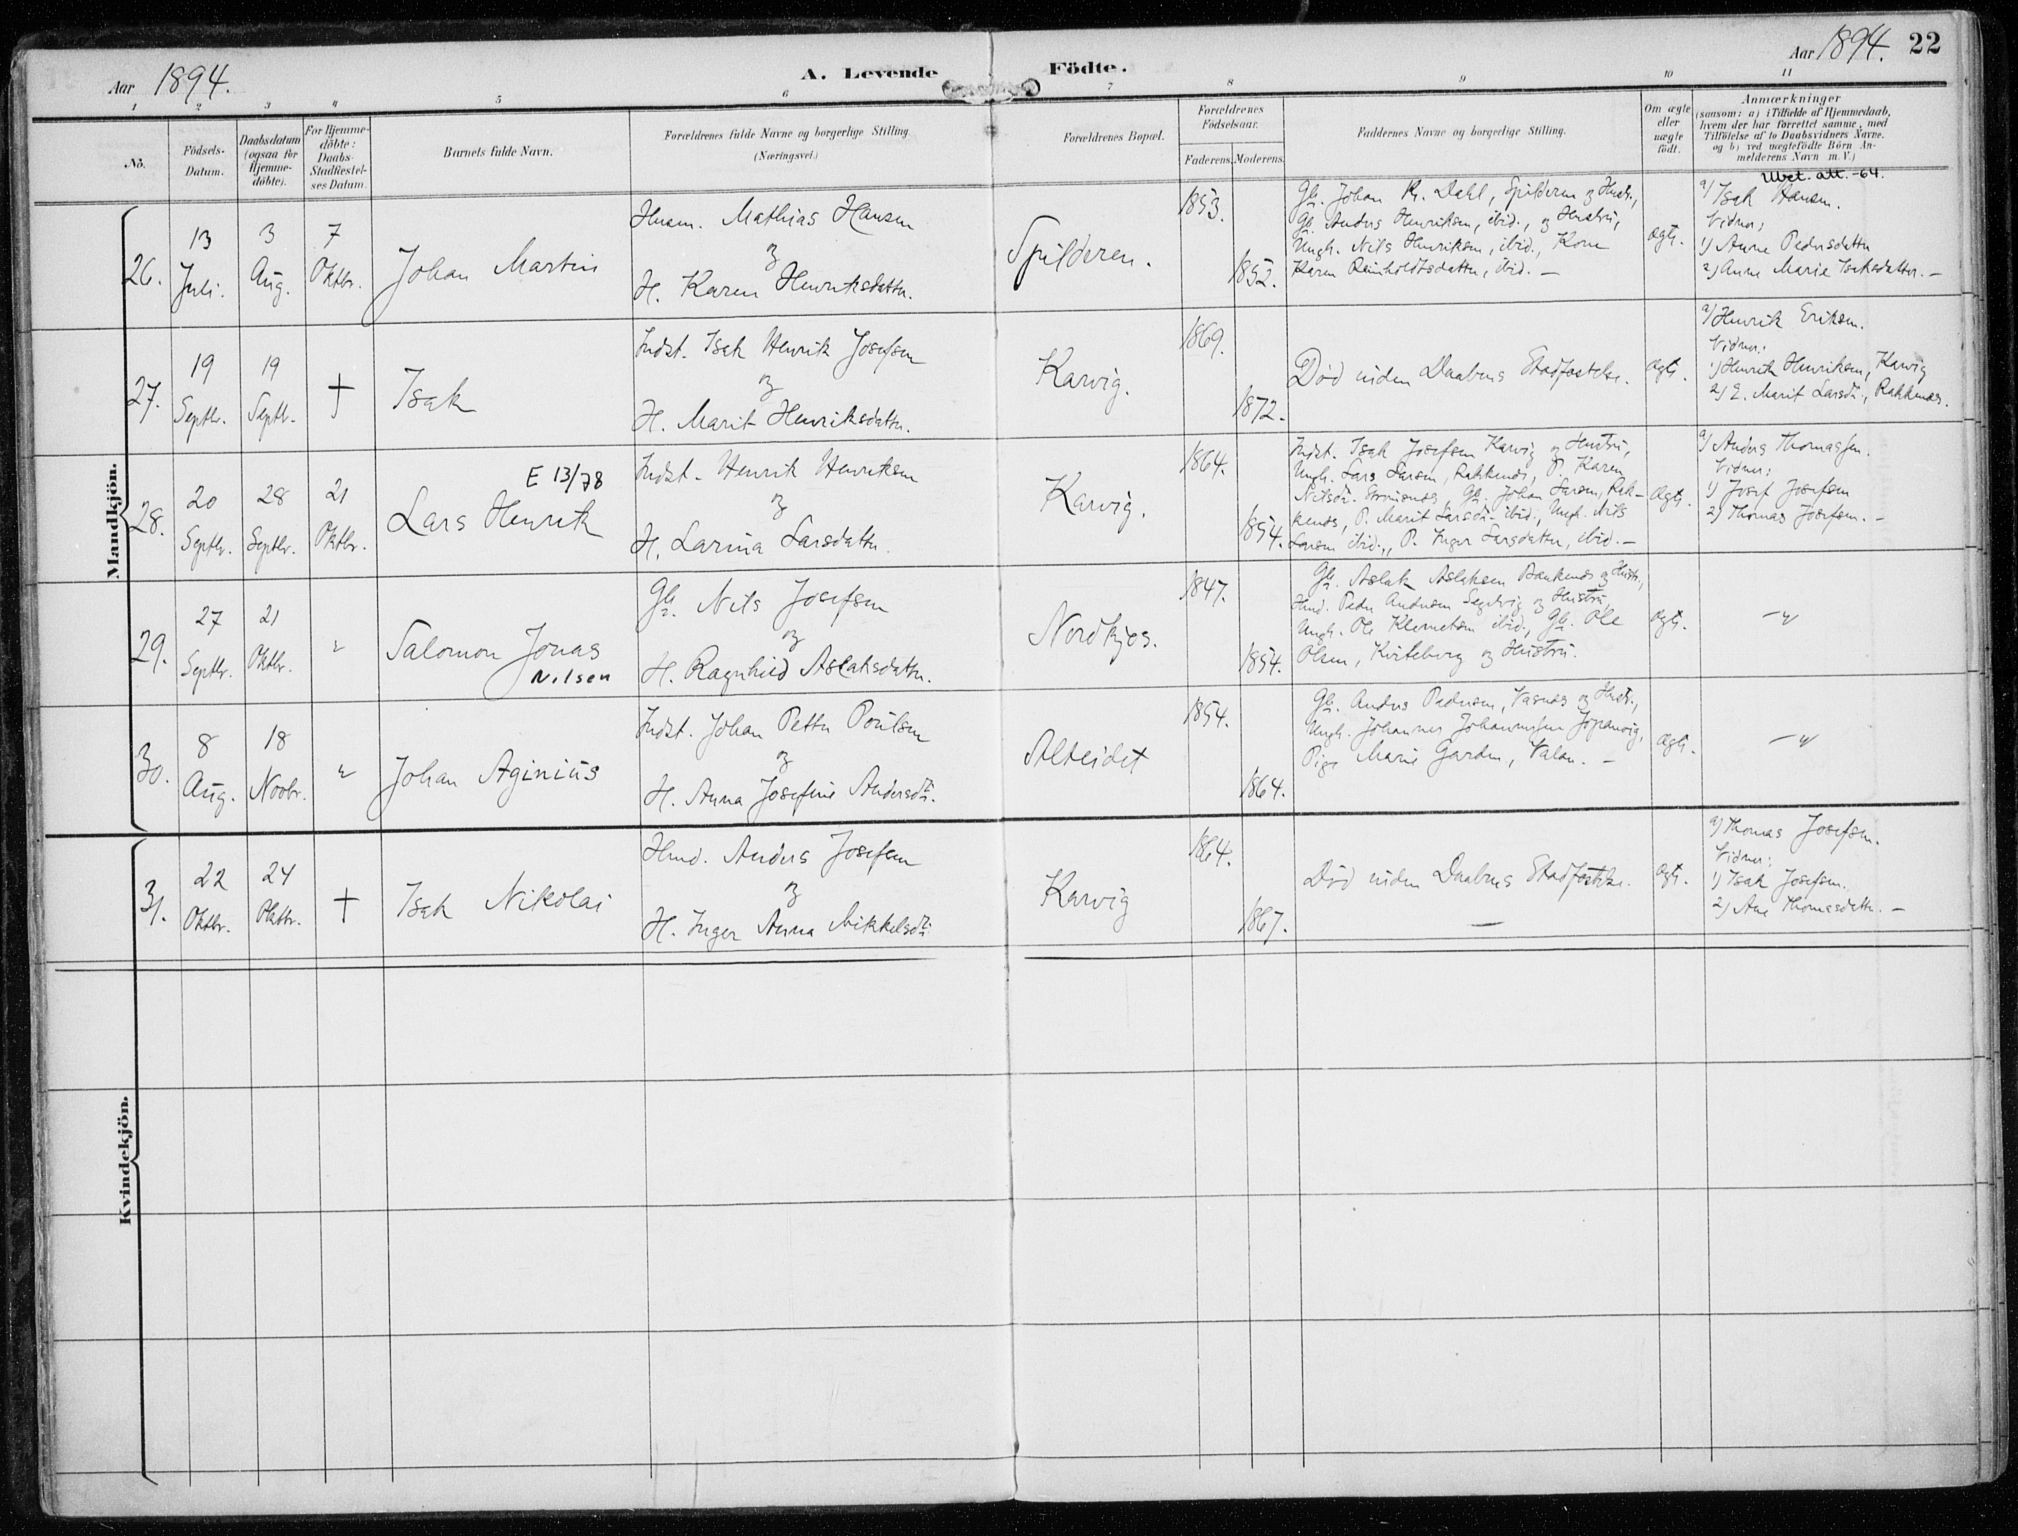 Aar 1894.
A. Levende Födte.
Aar 1894. 22
1 2 3 4 5 6 7 8 9 10 11
No.
Födsels-
Datum.
Daabsdatum
(ogsaa for
Hjemme-
döbte).
For Hjemme-
döbte:
Daabs-
Stadfæstel-
ses Datum.
Barnets fulde Navn.
Forældrenes fulde Navne og borgerlige Stilling
(Næringsvei.)
Forældrenes Bopæl.
Forældrenes
Födselsaar.
Faderens.
Moderens.
Faddernes Navne og borgerlige Stilling.
Om ægte
eller
uægte
født.
Anmærkninger
(saasom: a) i Tilfælde af Hjemmedaab,
hvem der har forrettet samme, med
Tilföielse af to Daabsvidners Navne.
og b) ved uægtefödte Börn An-
melderens Navn m. V.)
Mandkjön.
26.
13
Juli.
3
Aug.
7
Oktbr.
Johan Martin
Husm. Mathias Hansen
og
H. Karen Henriksdattr.
Spilderen.
1853.
1852.
Gb. Johan Kr. Dahl, Spilderen og Hustr.,
Gb. Anders Henriksen, ibid., og Hustru,
Ungk. Nils Henriksen, ibid., Kone
Karen Reinholdtsdatter, ibid. —
ægte.
Utst. att. -64.
a) Isak Hansen.
Vidner;
1) Anne Pedersdattr
2) Anne Marie Isaksdatter. —
27.
19
Septbr.
19
Septb.
†
Isak
Indst. Isak Henrik Josefsen
og
H. Marit Henriksdattr.
Karvig.
1869.
1872.
Død inden Daabens Stadfæstelse.
ægte.
a) Henrik Eriksen.
Vidner;
1) Henrik Henriksen, Karvig
2) E. Marit Larsd., Rakkenæs.
28.
20
Septbr.
28
Septbr.
21
Oktbr.
E 13/78
Lars Henrik
Indst. Henrik Henriksen
og
H. Larina Larsdattr.
Karvig.
1864.
1854.
Indst. Isak Josefsen Karvig og Hustru,
Ungk. Lars Larsen, Rakkenæs, P. Karen
Nilsd. Storsnes, Gb. Johan Larsen, Rak-
kenæs, P. Marit Larsd. ibid., Ungk. Nils
Larsen ibid., P. Inger Larsdatter, ibid. —
ægte.
a) Anders Thomassen.
Vidner;
1) Josef Josefsen
2) Thomas Josefsen. —
29.
27
Septbr.
21
Oktbr.
"
Salomon Jonas
Nilsen
Gb. Nils Josefsen
og
H. Ragnhild Aslaksdattr.
Nordkjos.
1847.
1854.
Gb. Aslak Aslaksen Bankenes og Hustr.,
Hmd. Peder Andersen Segelvig og Hustru
Ungk. Ole Klemetsen ibid., Gb. Ole
Olsen, Kviteberg og Hustru.
ægte.
—"
30.
8
Aug.
18
Novbr.
"
Johan Aginius
Indst. Johan Petter Poulsen
og
H. Anna Josefine Andersd.
Alteidet
1854.
1864.
Gb. Anders Pedersen, Vasnæs og Hustr.,
Ungk. Johannes Johannessen
Pige Marie Garden, Valan. —
ægte.
—"
Kvindekjön.
31.
22
Oktbr.
24
Oktbr.
†
Isak Nikolai
Hmd. Anders Josefsen
og
H. Inger Anna Mikkelsd.
Karvig
1864.
1867.
Død inden Daabens Stadfæstelse.
—
ægte.
a) Thomas Josefsen.
Vidner;
1) Isak Josefsen.
2) Ane Thomasdattr. —